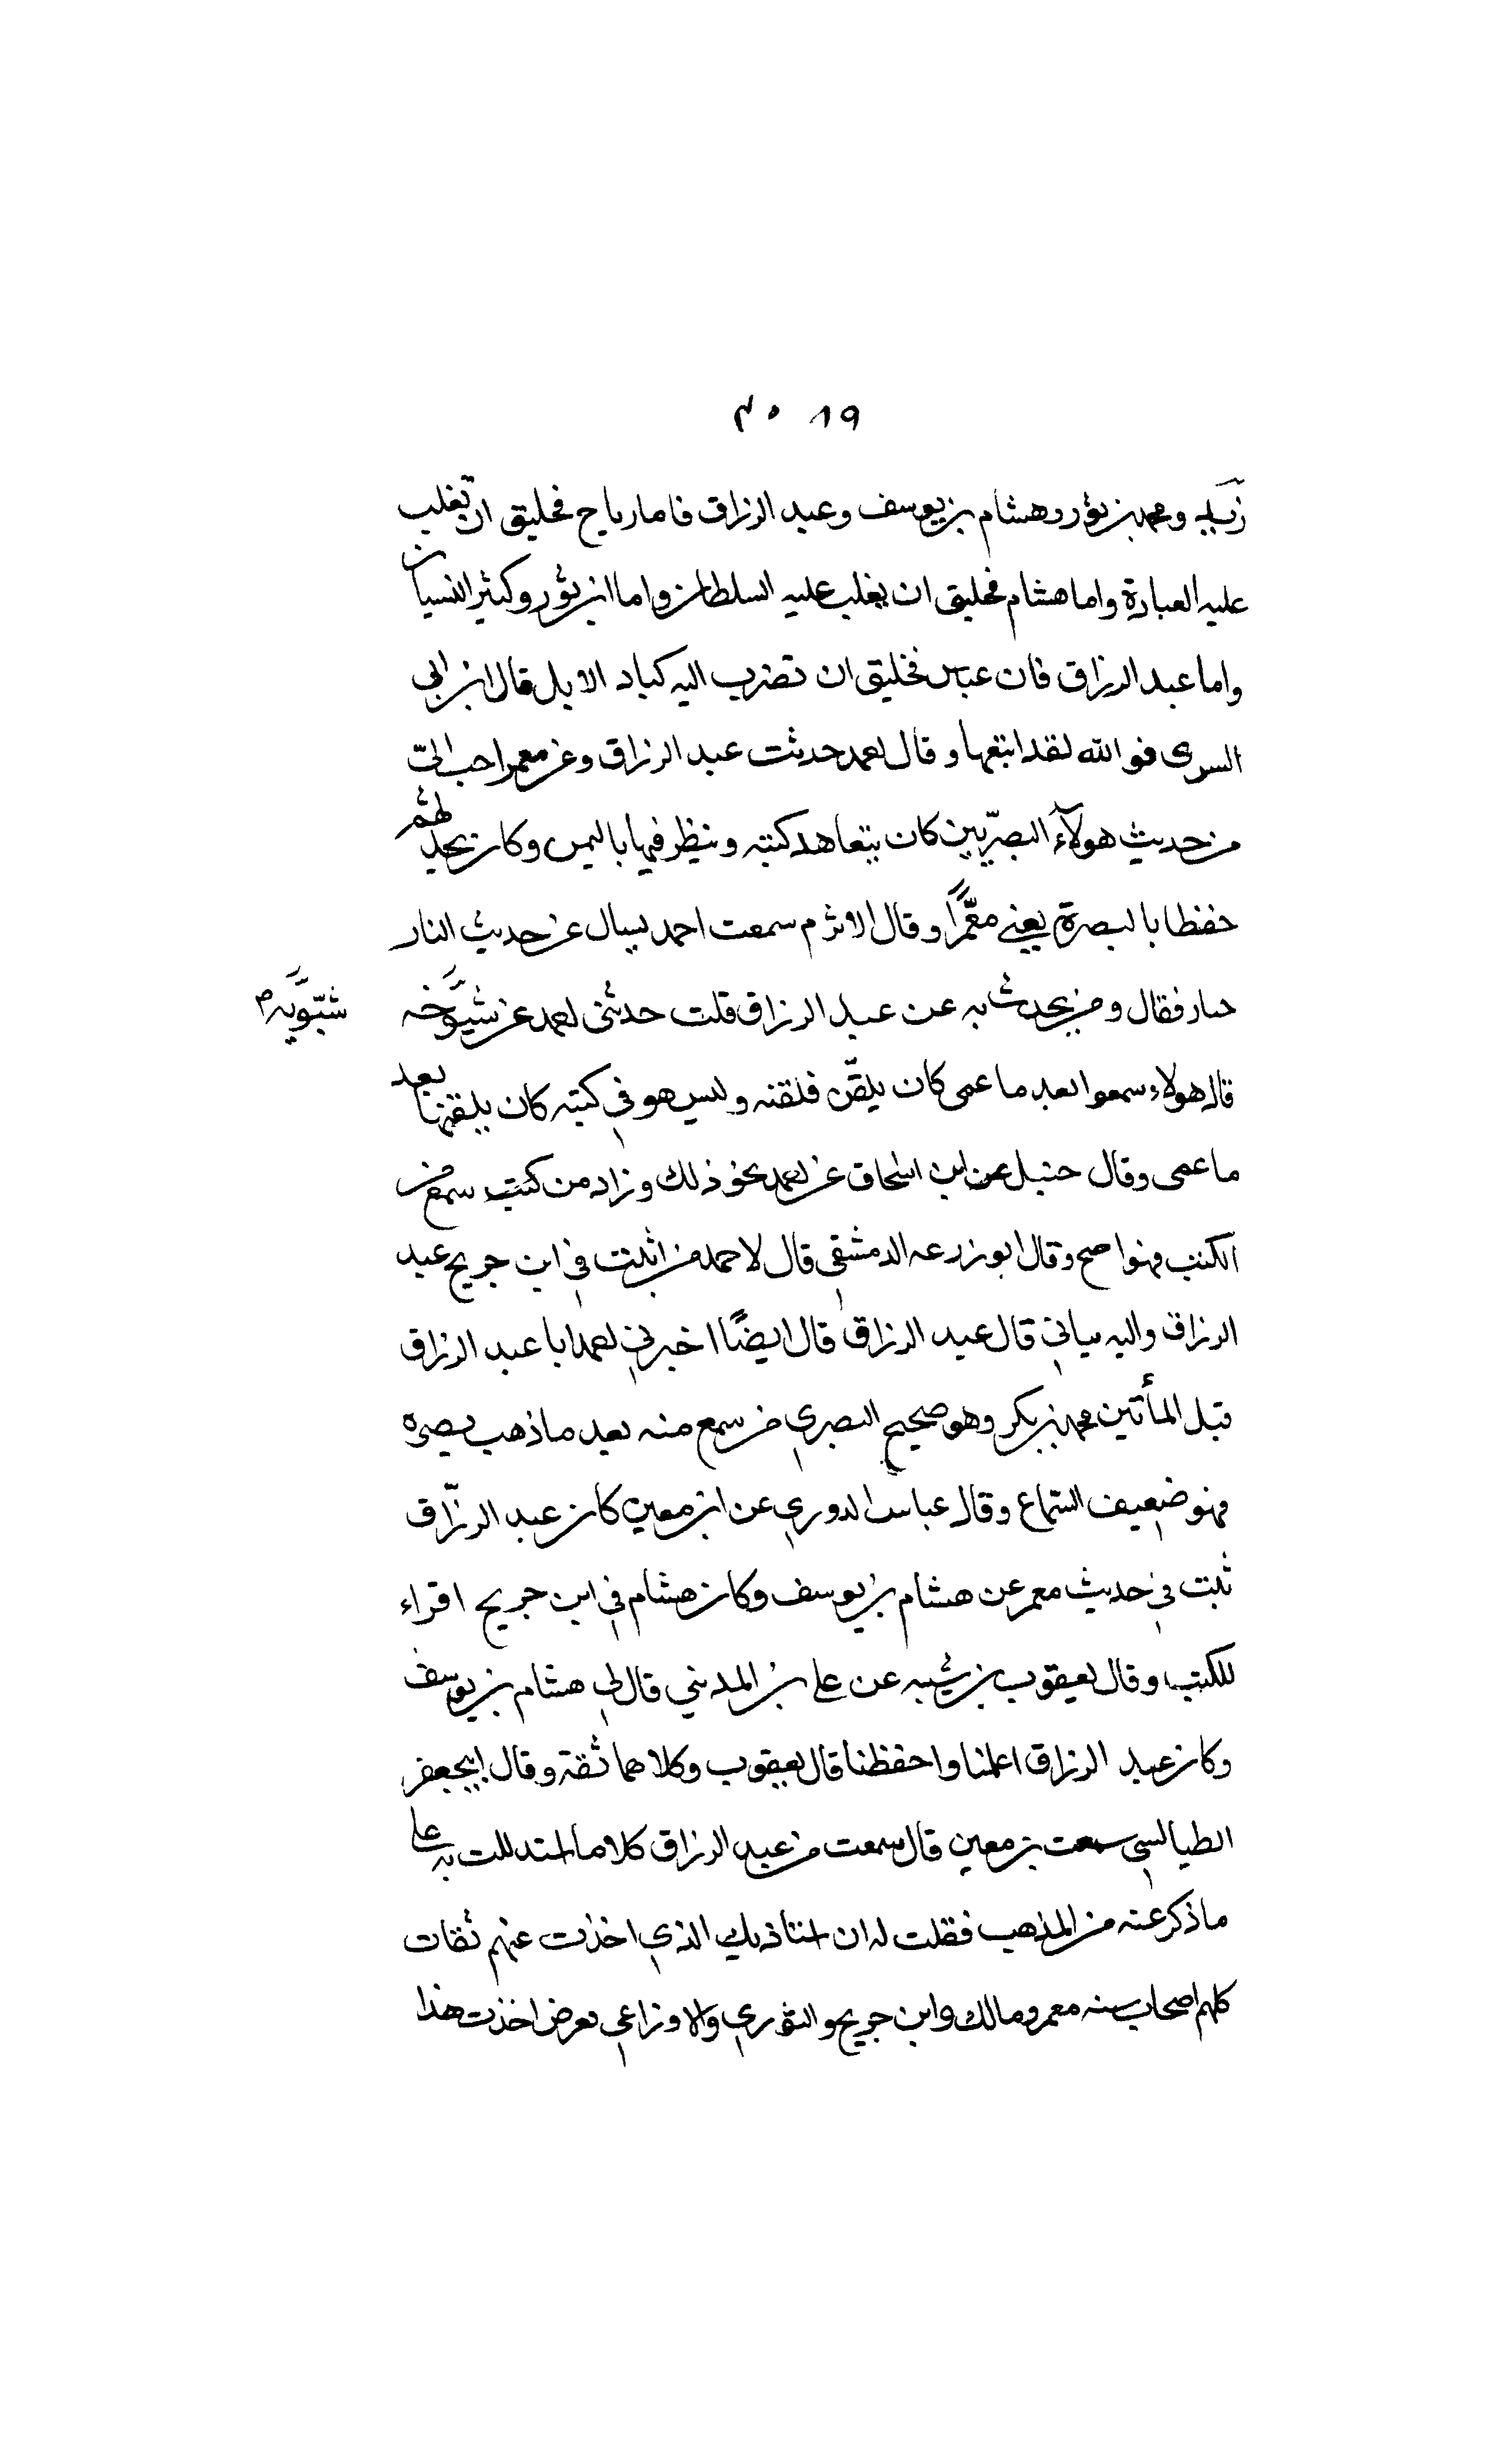 ٨٩ ٣٠
زيد ومحمد بن ثور وهشام بن يوسف وعبد الرزاق فاما رباح فخليق ان تغلب
عليه العبادة واما هشام فخليق ان يغلب عليه السلطان واما ابن ثور وكثير النسيان
واما عبد الرزاق فان عباس فخليق ان تضرب اليه كباد الابل قال ابن ابي
السرى فو الله لقد اتبعها وقال احمد حديث عبد الرزاق وعن معمر احب اليّ
من حديث هولآء البصرّيين كان يتعاهد كتبه وينظر فيها باليمن وكان يحدثهم
حفظا بالبصرة يعني معمّرًا وقال الاثرم سمعت احمد يسال عن حديث النار
جبار فقال ومن يحدث به عن عبد الرزاق قلت حدثنى احمد عن شيّوخه
شبّويه م
قال هولاء سمعوا بعد ما عمى كان يلقّن فلقنه وليس هو في كتبه كان يلقنها بعد
ما عمى وقال حنبل عن ابن اسحاق عن احمد نحو ذلك وزاد من كتب سمع من
الكتب فهو اصح وقال ابو زرعه الدمشقي قال لاحمد من اثبت في ابن جريج عبد
الرزاق واليه قال عبد الرزاق قال ايضًا اخبرني احمد ابا عبد الرزاق
قبل المأتين محمد بن بكر وهو صحيح البصري من سمع منه بعد ما ذهب بصره
فهو ضعيف السّماع وقال عباس الدوري عن ابن معين كان عبد الرزّاق
ثبت في حديث معمر عن هشام بن يوسف وكان هشام في ابن جريج اقراء
للكتب وقال يعقوب بن شيبه عن على بن المديني قال لي هشام بن يوسف
وكان عبد الرزاق اعلمنا واحفظنا قال يعقوب وكلاهما ثقة وقال ابي جعفر
الطيالسي سمعت بن معين قال سمعت من عبد الرزاق كلاما استدللت به على
ما ذكر عنه من المذهب فقلت له ان استاذيك الذي اخذت عنهم ثقات
كلهم اصحاب سنه معمر ومالك وابن جريج والثوري والاوزاعي بعرض اخذت هذا